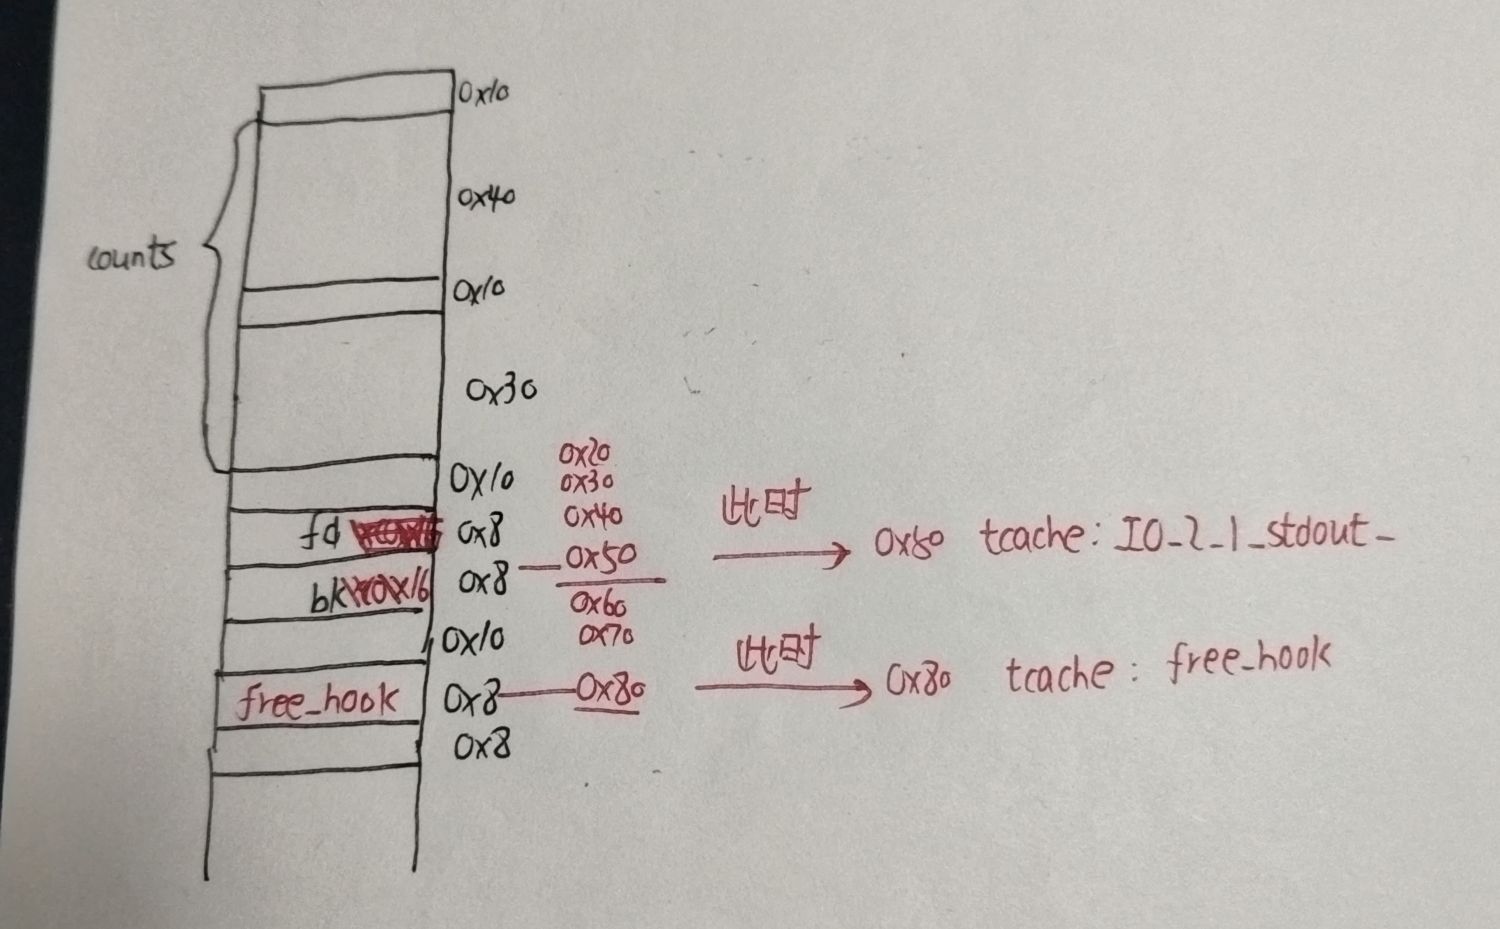 0x10
0x40
counts
0x10
0x30
0x20
0x10
0x30
0x40
此时
fd
0x8
0x50
0x50 tcache: IO_2_1_stdout_
bk
0x8
0x60
0x10
0x70
此时
free_hook
0x8
0x80
0x80 tcache: free_hook
0x8